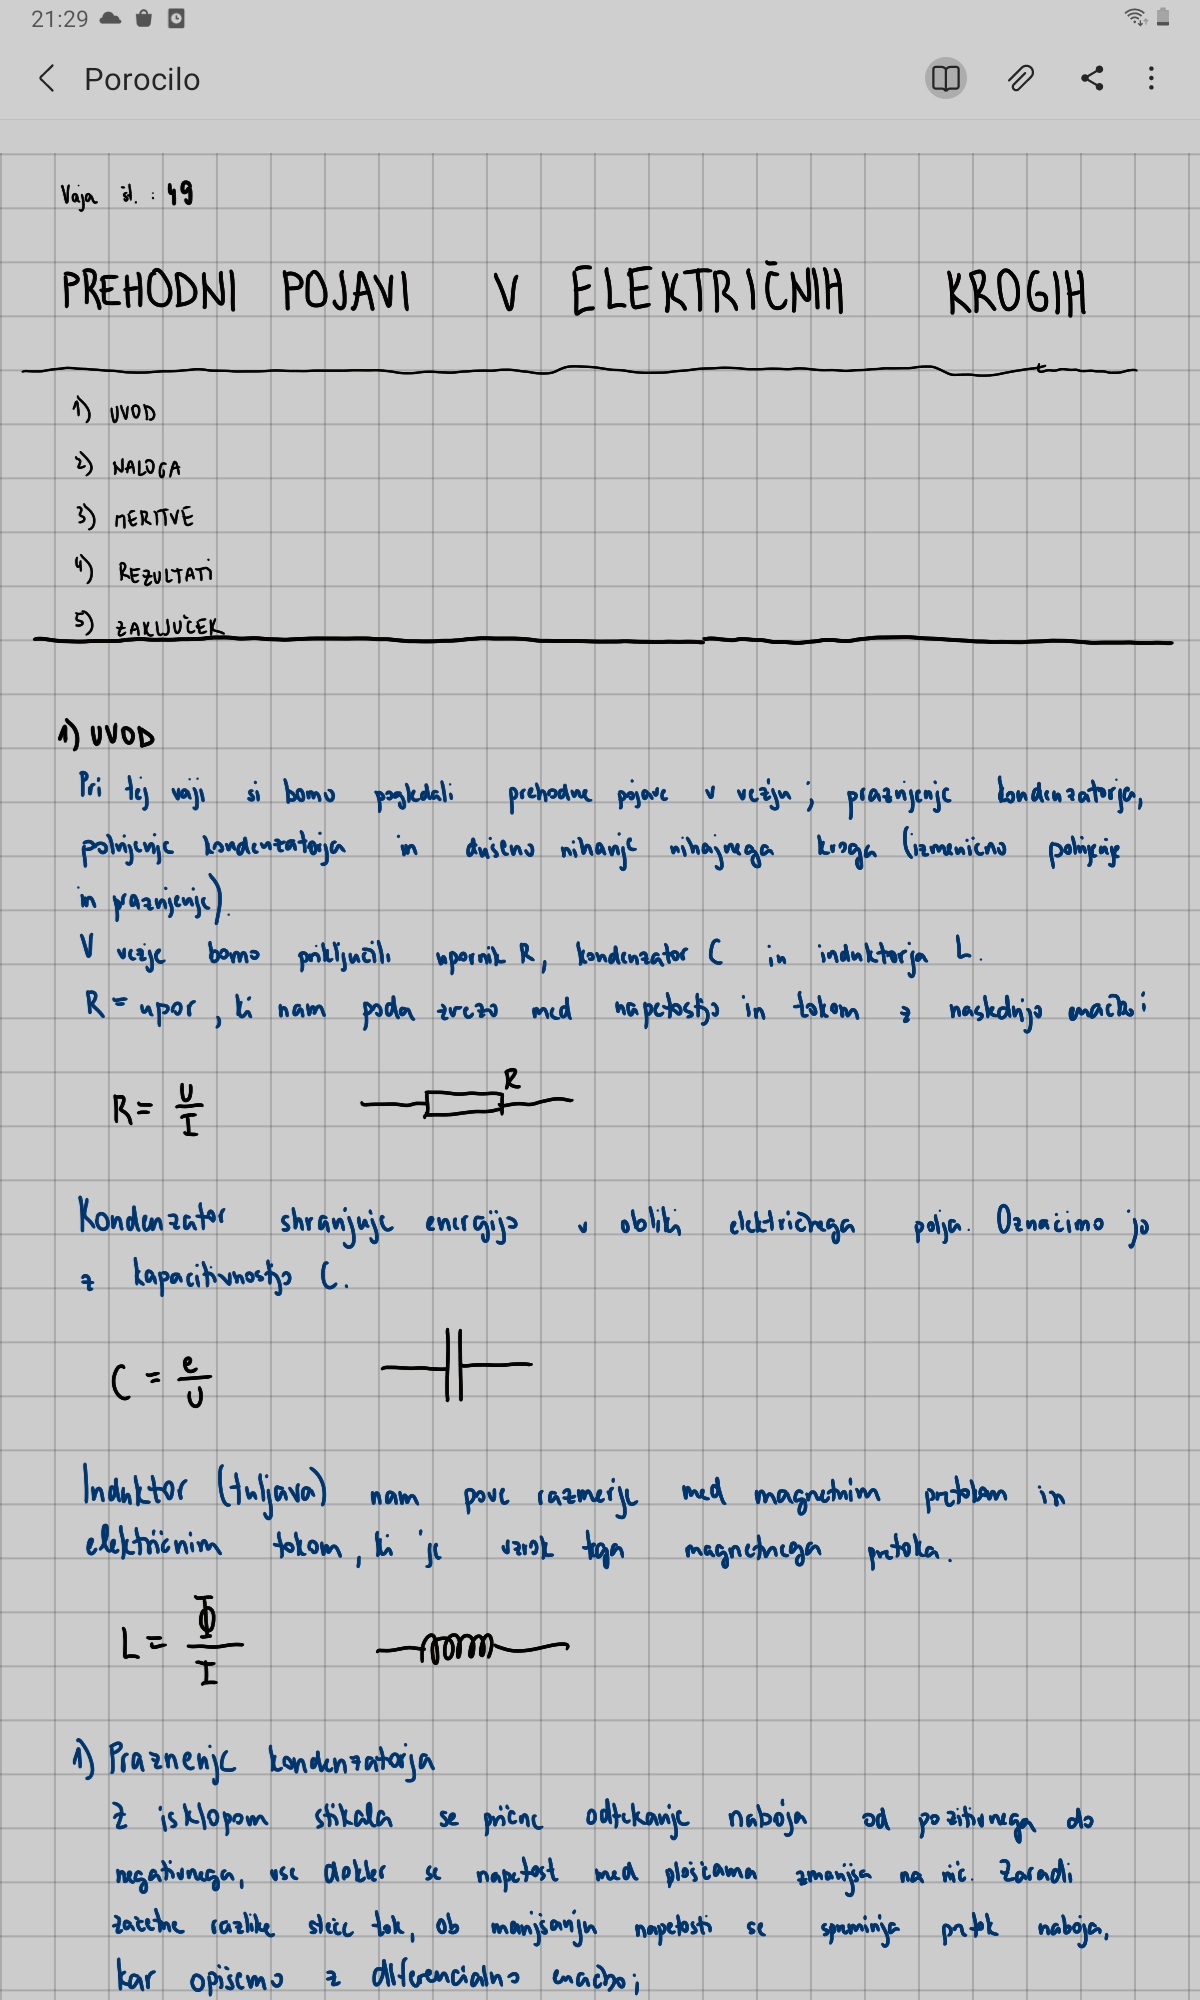 21:29
Porocilo
Vaja št. : 49
PREHODNI POJAVI V ELEKTRIČNIH KROGIH
1) UVOD
2) NALOGA
3) MERITVE
4) REZULTATI
5) ZAKLJUČEK
1) UVOD
Pri tej vaji si bomo pogledali prehodne pojave v vezju; praznjenje kondenzatorja,
polnjenje kondenzatorja in dušeno nihanje nihajnega kroga (izmenično polnjenje
in praznjenje).
V vezje bomo priključili upornik R, kondenzator C in induktorja L.
R = upor, ki nam poda zvezo med napetostjo in tokom z naslednjo enačbo:
R = U/I
R
Kondenzator shranjuje energijo v obliki električnega polja. Označimo jo
z kapacitivnostjo C.
C = e/U
Induktor (tuljava) nam pove razmerje med magnetnim pretokom in
električnim tokom, ki je vzrok tega magnetnega pretoka.
L = Φ/I
1) Praznenje kondenzatorja
Z isklopom stikala se prične odtekanje naboja od pozitivnega do
negativnega, vse dokler se napetost med ploščama zmanjša na nič. Zaradi
začetne razlike steče tok, ob manjšanju napetosti se spreminja pretok naboja,
kar opišemo z diferencialno enačbo;